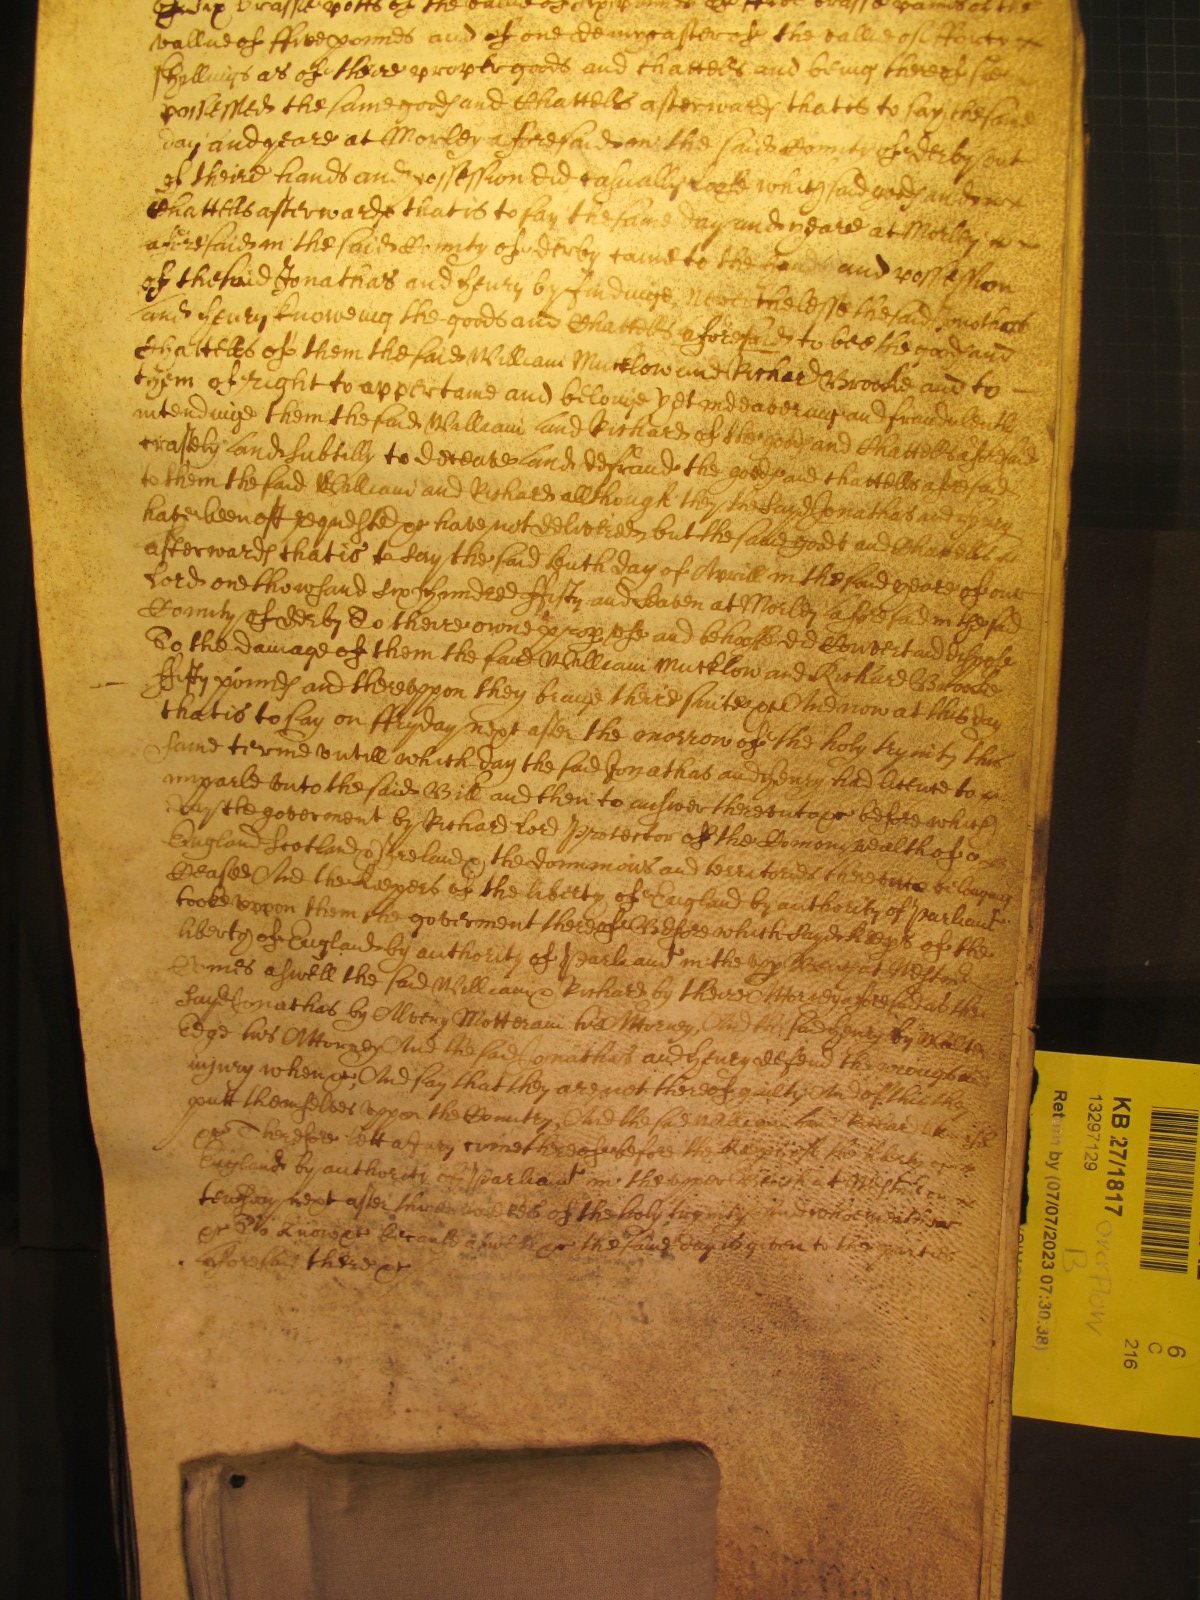 of six brasse potts of the value of six pounds of ffive brasse panns of the
vallue of ffive pounds and of one dripping of the vallue of fforty
shillings as of theire proper goods and chattells and being thereof soe
possessed the same goods and Chattells afterwards that is to say the same
day and yeare at Morley aforesaid in the said County of Derby out
of theire hands and possession did casually loose which said goods and
Chattells afterwards that is to say the same day and yeare at Morley
aforesaid in the said County of Derby came to the hands and possession
of the said Jonathas and Henry by findinge, Neverthelesse the said Jonathas
and Henry knoweing the goods and Chattells aforesaid to bee the goods and
Chattells of them the said William Mucklow and Richard Brooke and to
them of right to appertaine and belonge yet indeavering and fraudulently
intendinge them the said William and Richard of the goods and Chattells aforesaid
craftely and subtilly to deceave and defraude the goods and chattells aforesaid
to them the said William and Richard allthough they the sayd Jonathas and Henry
have been oft requested &c have not delivered but the same goods and Chattells
afterwards that is to say the said tenth day of Aprill in the said yeare of our
Lord one thowsand six hundred ffifty and seaven at Morley aforesaid in the said
County of Derby To theire owne proper use and behoofe did Convert and dispose
To the damage of them the said William Mucklow and Richard Brooke
ffifty pounds and thereuppon they bringe theire suite &c And now at this day
that is to say on ffryday next after the morrow of the holy trynity this
same terme untill which day the said Jonathas and Henry had licence to
imparle unto the said Bill and then to answer thereunto &c before which
day the goverment by Richard Lord Protector of the Comonwealth of
England Scotland & Ireland & the dominions and territories thereunto belonging
Ceased And the Keepers of the liberty of England by authority of Parliamt
tooke uppon them the goverment thereof Before which sayd keepers of the
liberty of England by authority of Parliamt in the upp Bench at Westm
Comes aswell the said William & Richard by theire Attorney aforesaid as the
sayd Jonathas by Mottram his Attorney, And the said Henry by Walter
Edge his Attorney And the said Jonathas and Henry defend the wrongs and
injury when &c And say that they are not thereof guilty And of this they
putt themselves uppon the Country, And the said William and Richard likewise
&c Therefore lett a Jury come thereof before the Keepers of the liberty of
England by authority of Parliamt in the upper Bench at Westm on
next after three weekes of the holy trynity and who neither
&c To Know &c Because aswell &c the same day is given to the parties
aforesaid there &c
KB 27/1817
13297129
Return by (07/07/2023 07:30:38)
overflow
B
6
C
216